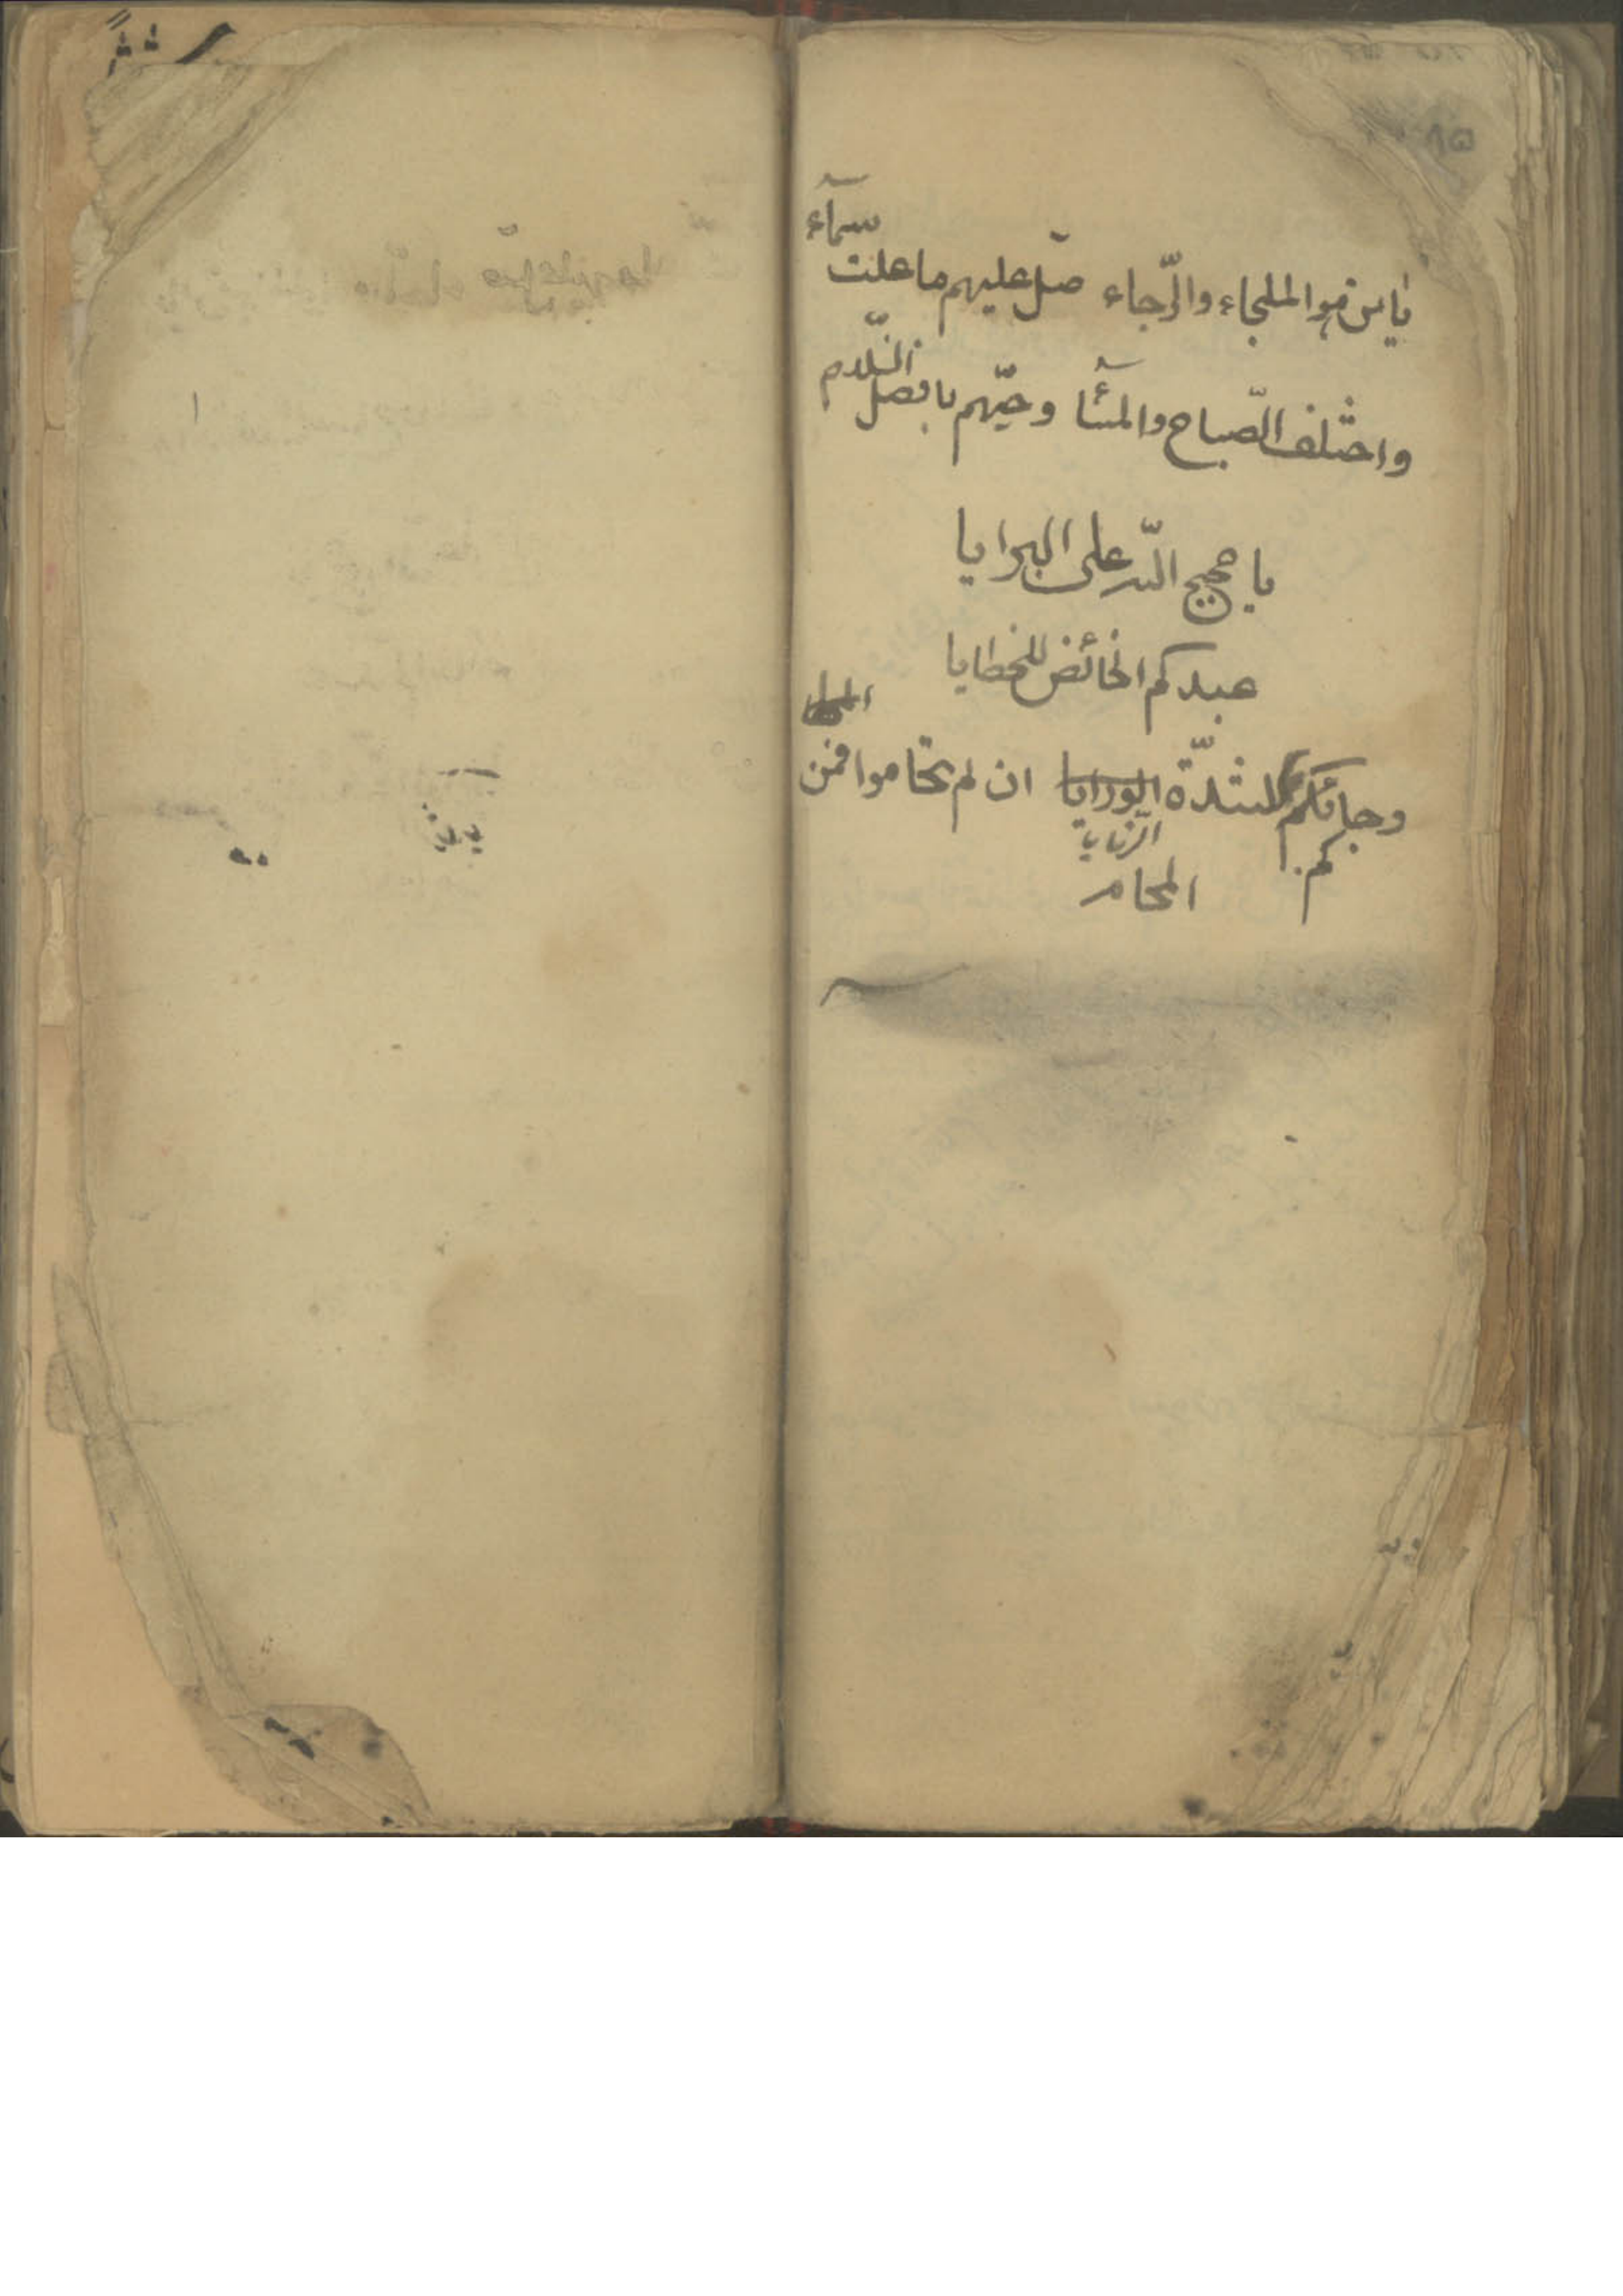 ٨٥
سمآء
يا من هو الملجاء والرّجاء صلّ عليهم ما علت
واختلف الصّباح والمسآء وحيّهم بافضل السّلام
يا حجج اللّه على البرايا
عبدكم الخائض للخطايا
وجائكم لشدّة الورايا ان لم تحاموا فمن
الرّزايا
بكم
المحام